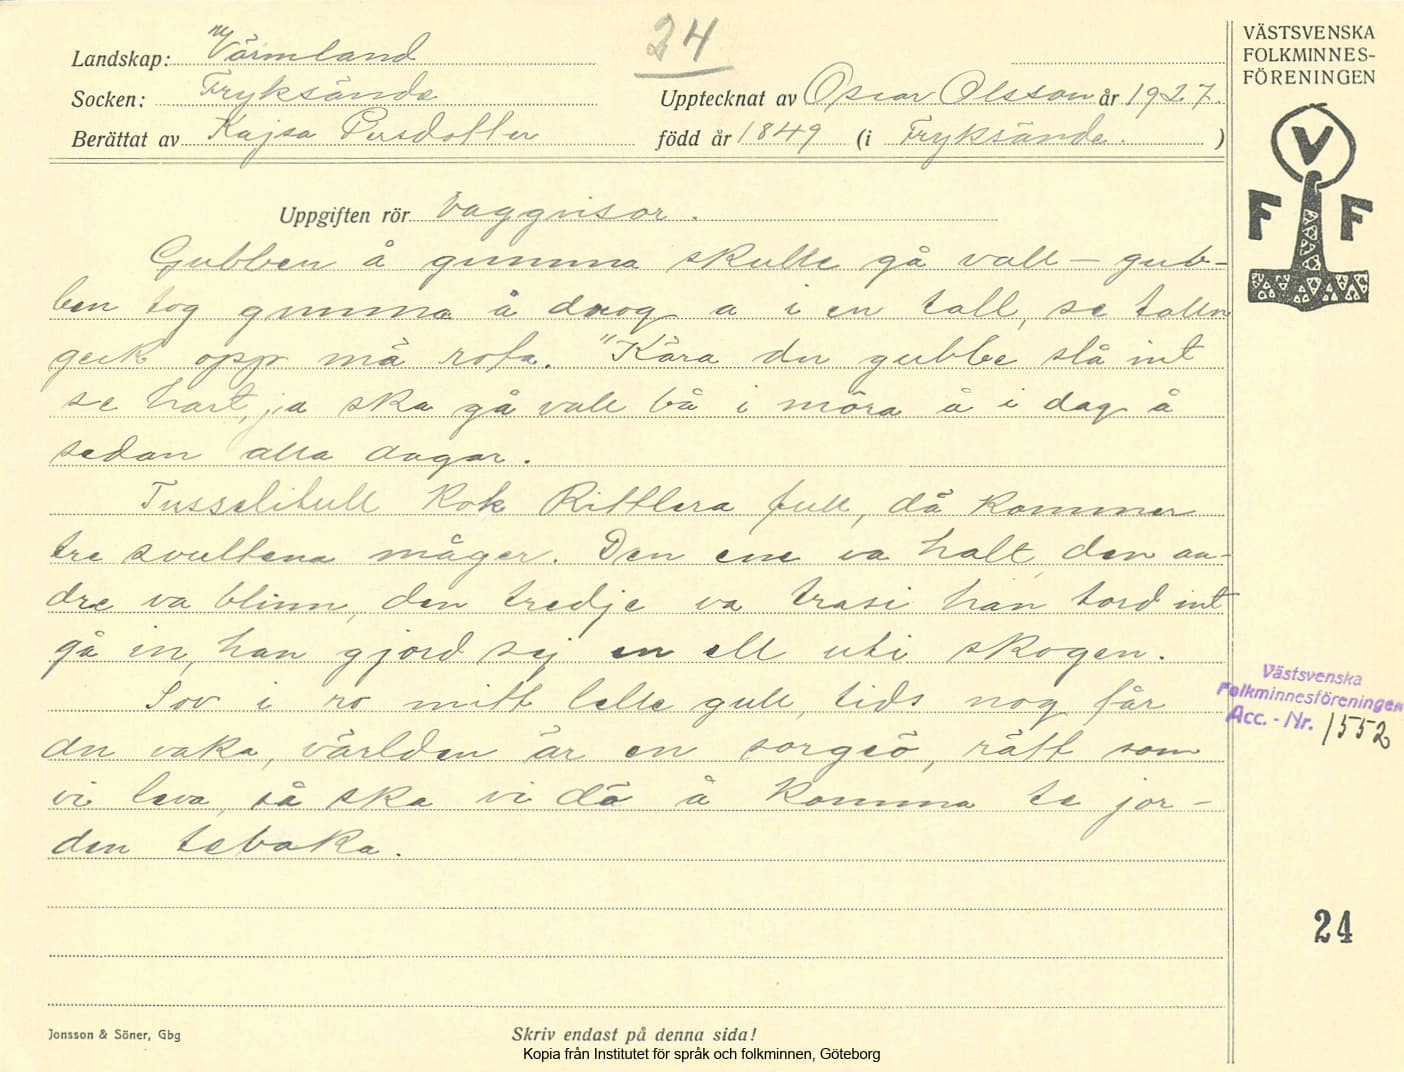 24
ny
Landskap: Värmland
Socken: Fryksände
Upptecknat av Oscar Olsson år 1927.
Berättat av Kajsa Persdotter
född år 1849 (i Fryksände. )
Uppgiften rör Vaggvisor.
Gubben å gumma skulle gå vall – gub-
ben tog gumma å drog a i en tall, se talln
geck opp mä rota. "Kära du gubbe slå int
se hart, ja ska gå vall bå i möra å i dag å
sedan alla dagar.
Tusselitull Kok Kittlera full, då kommer
tre svultena måger. Den ene va halt, den an-
dre va blinn, den tredje va trasi han tord int
gå in, han gjord sej en ell uti skogen.
Sov i ro mitt lelle gull, tids nog får
du vaka, världen är en sorgeö, rätt som
vi leva, så ska vi dö å komma te jor-
den tebaka.
VÄSTSVENSKA
FOLKMINNES-
FÖRENINGEN
V
F F
Västsvenska
Folkminnesföreningen
Acc. - Nr. 1552
24
Jonsson & Söner, Gbg
Skriv endast på denna sida!
Kopia från Institutet för språk och folkminnen, Göteborg